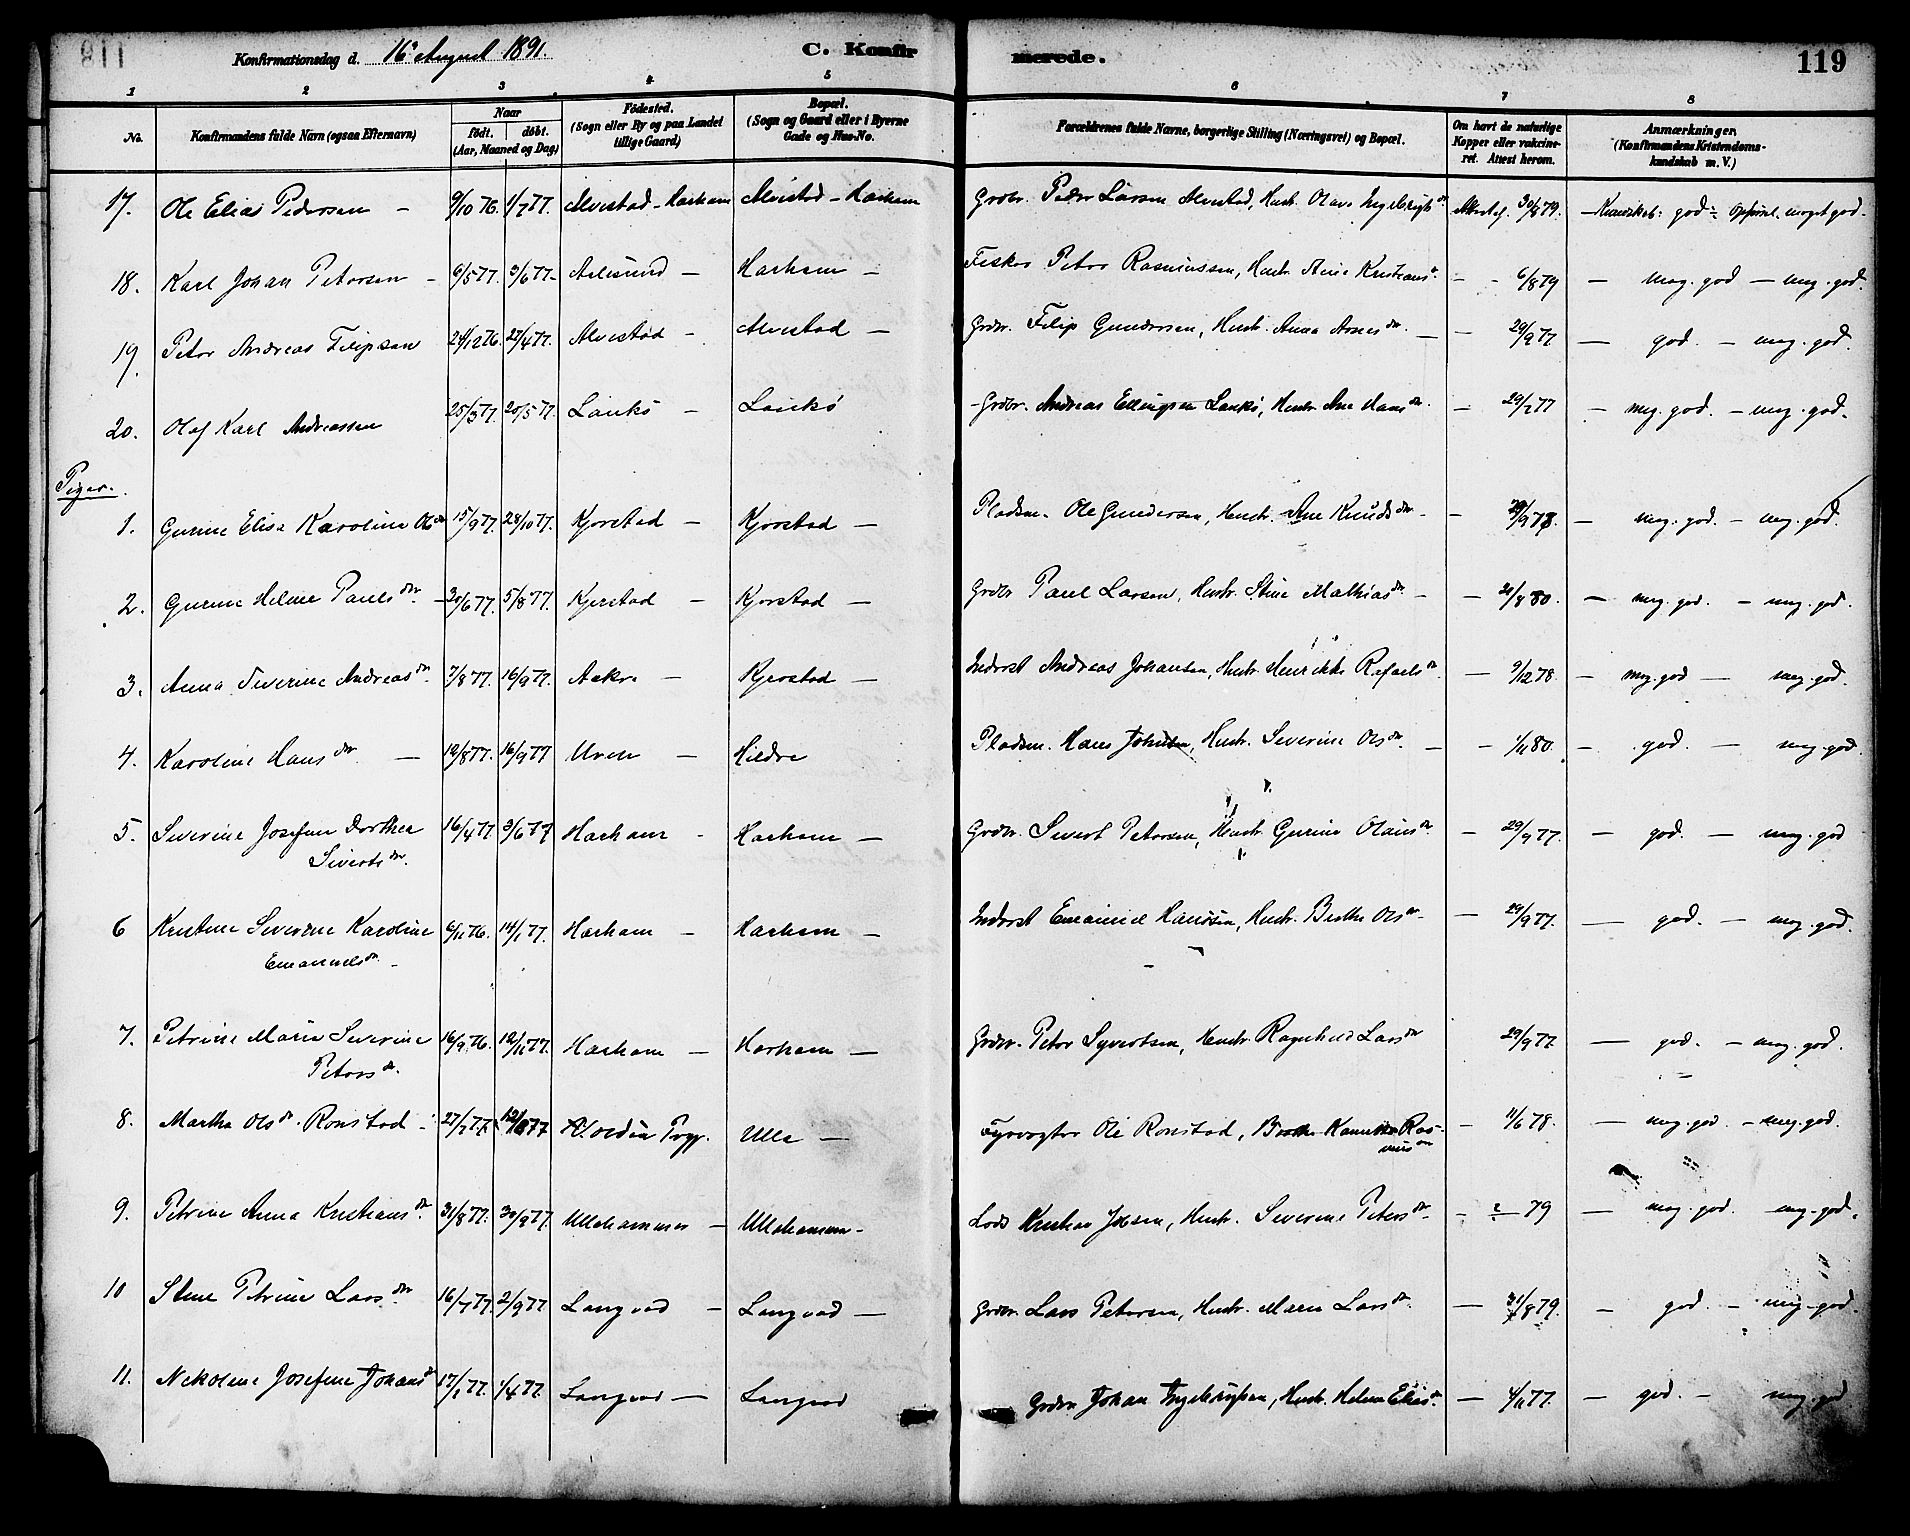 Konfirmationsdag d. 16 August 1891. C. Konfirmerede. 119
1 2 3 4 5 6 7 8
No. Konfirmandens fulde Navn (ogsaa Efternavn) Naar født. døbt. (Aar, Maaned og Dag) Fødested. (Sogn eller By og paa Landet tillige Gaard) Bopæl. (Sogn og Gaard eller i Byerne Gade og Hus-No. Forældrenes fulde Navne, borgerlige Stilling (Næringsvei) og Bopæl. Om havt de naturlige Kopper eller vaksineret. Attest herom. Anmærkninger. (Konfirmandens Kristendomskundskab m. V.)
17. Ole Elias Pedersen - 9/10 76. 1/7 77. Alvestad - Harham Alvestad - Harham Grdbr. Peder Larsen Alvestad, Hustr. Olave Ingebrigtsdr. 30/8 79. - Kundskab: god - Opførsel. meget god.
18. Karl Johan Petersen - 6/5 77. 3/6 77. Aalesund - Harham - Fisker Peter Rasmussen, Hustr. Anne Kristiansdr. - - 6/8 79 - meg. god - meg. god.
19. Peter Andreas Filipsen 24/12 76. 22/4 77. Alvestad - Alvestad - Grdbr. Filip Gundersen, Hustr. Anna Arnesdr. - - 29/9 77 - god. - meg. god.
20. Olaf Karl Andreassen 25/3 77. 20/5 77. Laukø - Laukø - Grdbr. Andreas Ellingsen Laukø, Hustr. Ane Hansdr. - 29/9 77 - meg. god. - meg. god.
Piger.
1. Gurine Elise Karoline Olsdr 15/9 77. 28/10 77. Kjerstad - Kjerstad - Pladsm. Ole Gundersen, Hustr. Ane Knudsdr. - - 29/9 78. - meg. god. - meg. god.
2. Gurine Helene Paulsdtr. - 30/6 77. 5/8 77. Kjerstad - Kjerstad - Grdbr Paul Larsen, Hustr. Stine Mathiasdr. - - 21/8 80. - meg. god. - meg. god.
3. Anna Severine Andreasdr. 7/8 77. 16/9 77. Aakre - Kjerstad - Inderst Andreas Johansen, Hustr. Henrikke Rafaelsdr. - 9/12 78 - meg. god - meg. god.
4. Karoline Hansdtr - 12/8 77. 16/9 77 Uren - Hildre Pladsm. Hans Johnsen, Hustr. Severine Olsdr. - - 1/11 80. - god. - meg. god
5. Severine Josefine Dorthea 16/4 77. 3/6 77 Harham - Harham - Grdbr. Sivert Petersen, Hustr. Gurine Olausdr - 29/9 77. - god. - meg. god
Sivertsdr.
6 Kristine Severine Karoline 6/11 76. 14/1 77. Harham - Harham - Inderst Emanuel Hansen, Hustr. Berthe Olsdr - 29/9 77. - god. - meg. god.
Emanuelsdr. -
7. Petrine Marie Severine 16/9 76. 12/11 77. Harham - Harham - Grdbr. Peter Syvertsen, Hustr. Ragnhild Larsdr 29/9 77. - god. - meg. god.
Petersdr.
8. Martha Olsdr. Ronstad - 27/7 77. 12/8 77 Ulla - Fyrvogter Ole Ronstad, Berthe Ras- - 11/6 78. - meg. god - meg. god.
musdr
9. Petrine Anna Kristiansdr. 31/8 77. 30/9 77. Ullahammer - Ullahammer - Lods Kristian Hustr. Severine Petersdr. - ? 79 - meg. god. meg. god.
10 Stine Petrine Larsdtr 16/7 77. 2/9 77 Langvad - Langvad - Grdbr. Lars Petersen, Hustr. Marie Larsdr. - 31/8 79. - god - meg. god.
11. Nikoline Josefine Johansdr 17/2 77. 1/4 77. Langvad - Langvad Grdbr Johan Ingebrigtsen, Hustr. Helene Eliasdr. - 4/11 77. - god. - meg. god